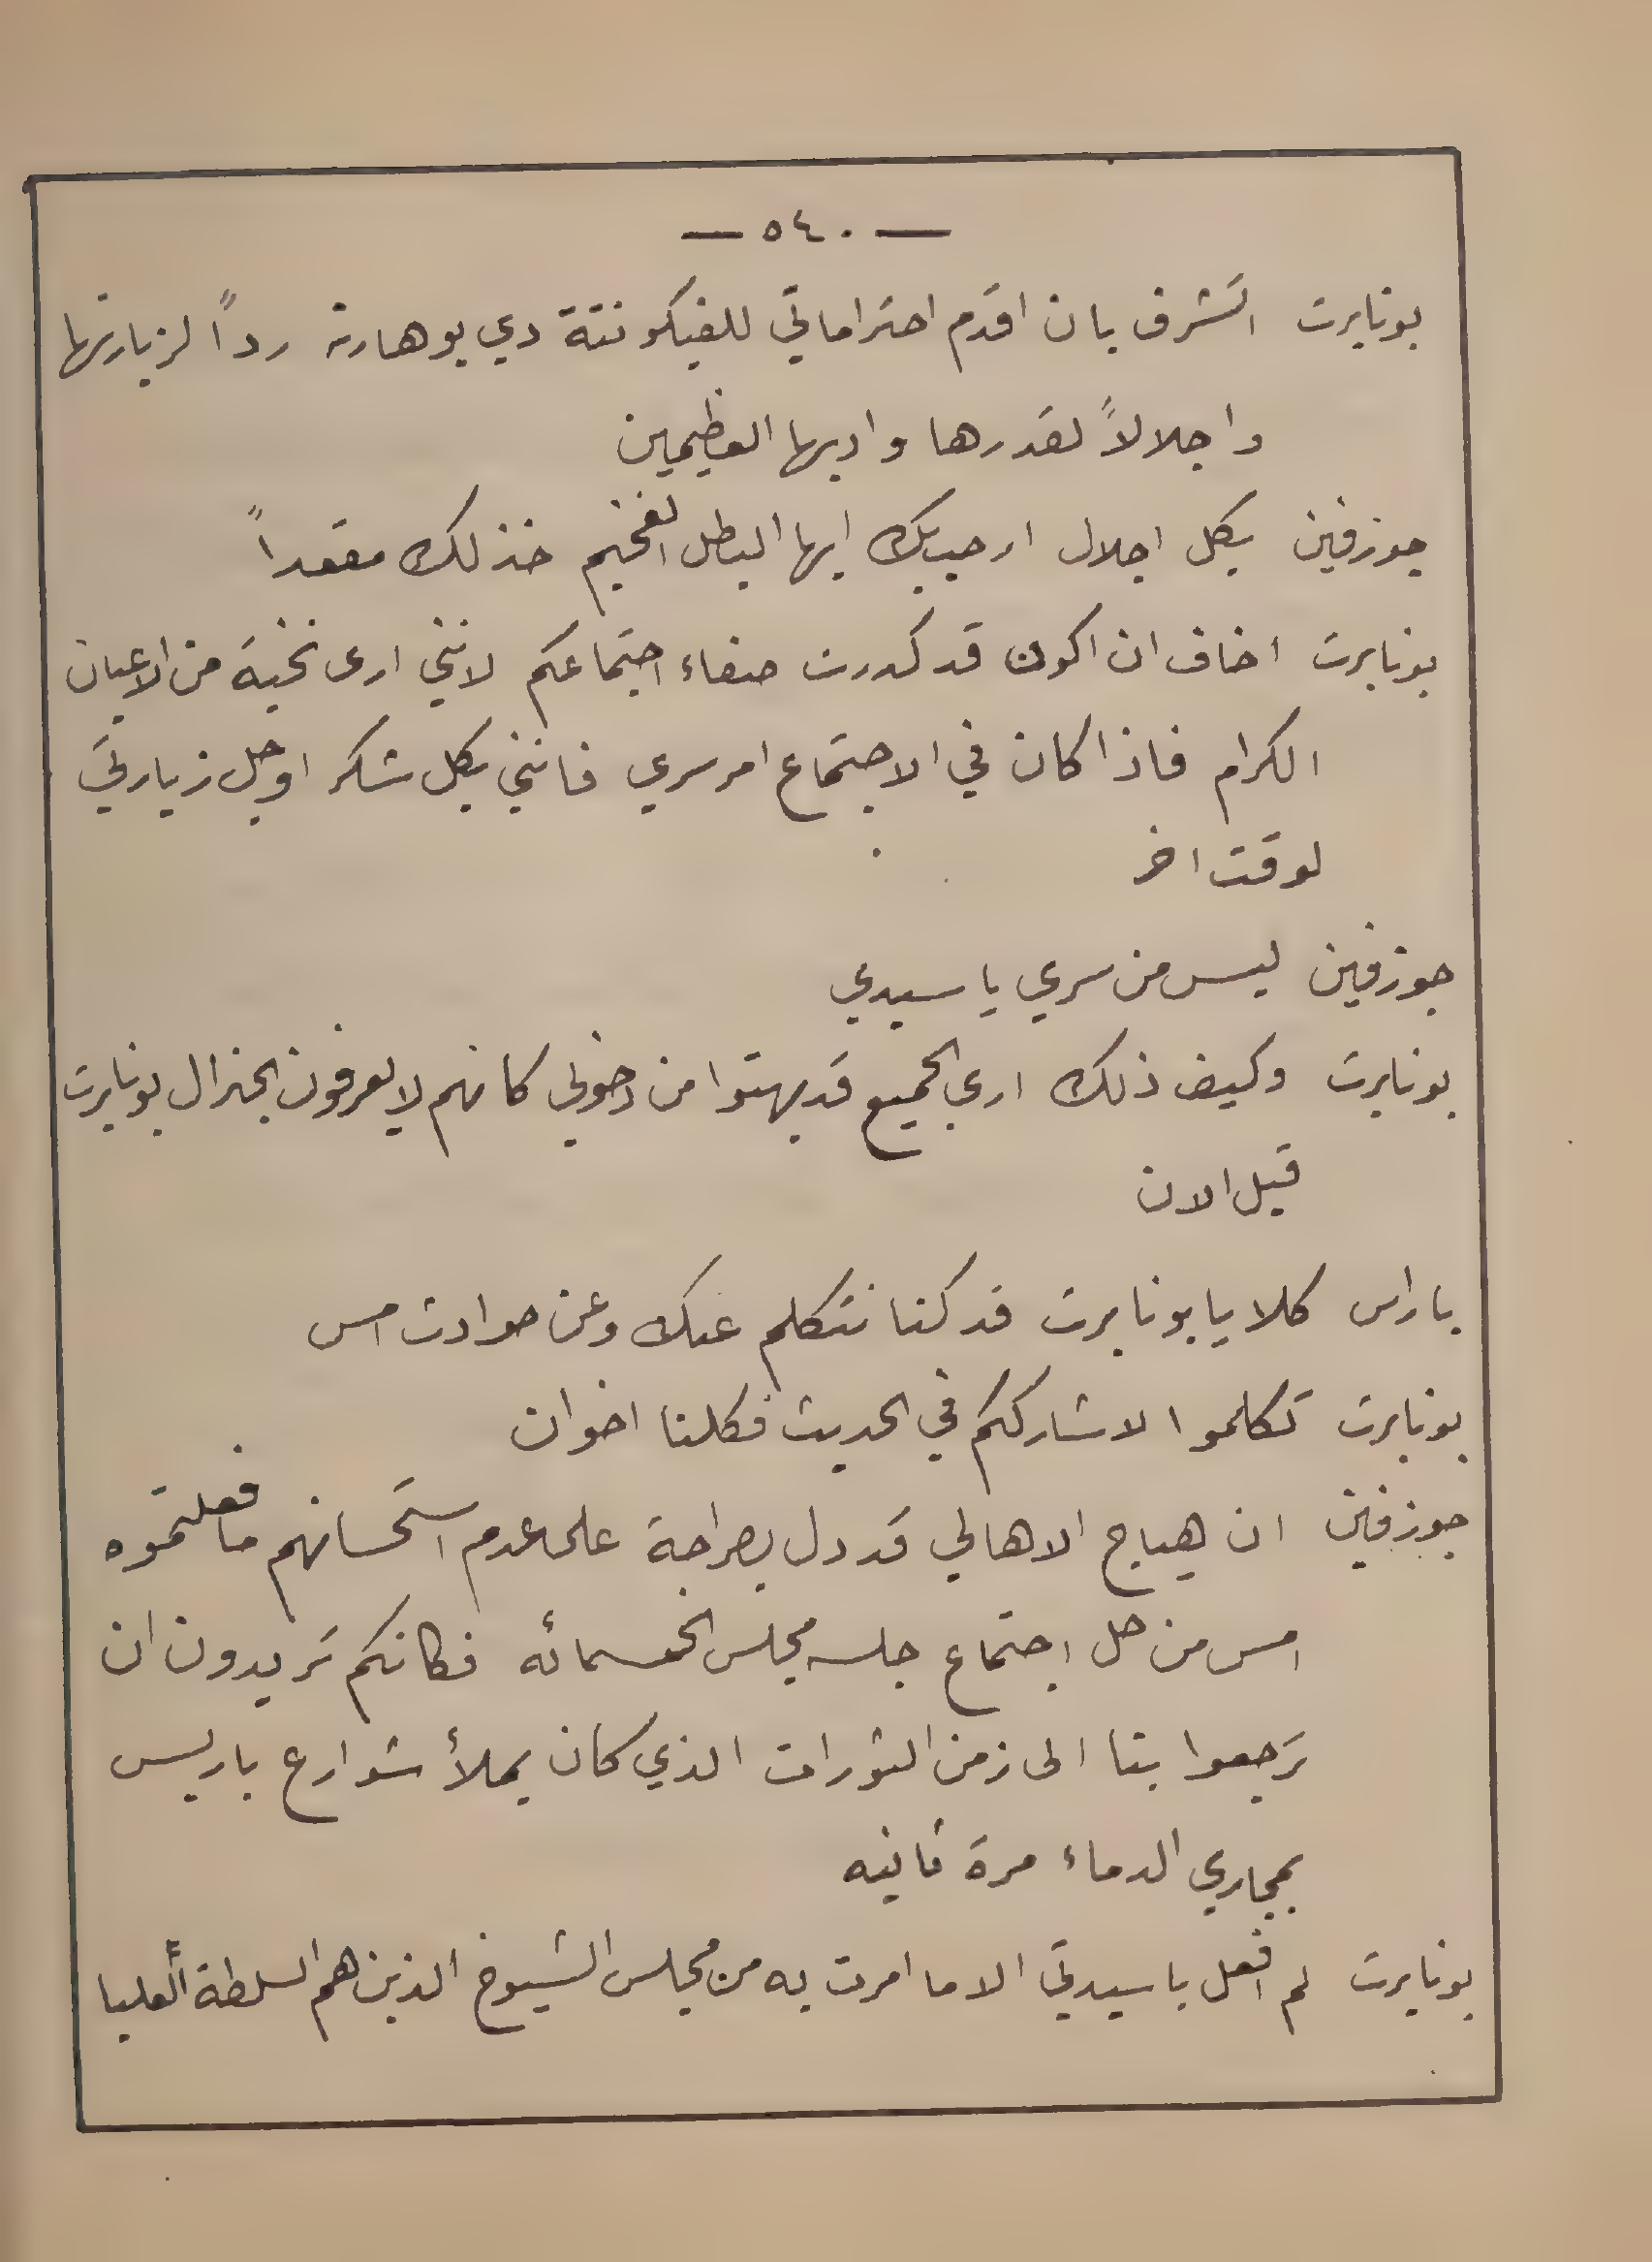 — ٥٤٠ —
بونابرت اتشرف بان اقدم احتراماتي للفيكونتة دي بوهارنه رداً لزيارتها
واجلالاً لقدرها وادبها العظيمين
جوزفين بكل اجلال ارحب بك ايها البطل الفخيم خذ لك مقعداً
بونابرت اخاف ان اكون قد كدرت صفاء اجتماعكم لانني ارى نخبة من الاعيان
الكرام فاذا كان في الاجتماع امر سري فانني بكل شكر اوجل زيارتي
لوقت اخر
جوزفين ليس من سري يا سيدي
بونابرت وكيف ذلك ارى الجميع قد بهتوا من دخولي كانهم لا يعرفون الجنرال بونابرت
قبل الان
باراس كلا يا بونابرت قد كنا نتكلم عنك وعن حوادث امس
بونابرت تكلموا لاشارككم في الحديث فكلنا اخوان
جوزفين ان هياج الاهالي قد دل بصراحة على عدم استحسانهم ما فعلتموه
امس من حل اجتماع جلسه مجلس الخمسمائه فكانكم تريدون ان
ترجعوا بنا الى زمن الثورات الذي كان يملأ شوارع باريس
بمجاري الدماء مرة ثانيه
بونابرت لم افعل يا سيدتي الا ما امرت به من مجلس الشيوخ الذين هم السلطة العليا